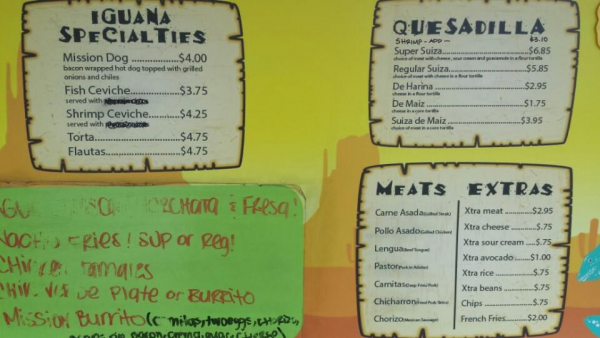 IGUANA
SPECIALTIES
Mission Dog ...............$4.00
bacon wrapped hot dog topped with grilled
onions and chiles
Fish Ceviche...............$3.75
served with
Shrimp Ceviche...........$4.25
served with
Torta............................$4.75
Flautas.........................$4.75
QUESADILLA
SHRIMP - ADD - $3.10
Super Suiza............................$6.85
choice of meat with cheese, sour cream and guacamole in a flour tortilla
Regular Suiza.........................$5.85
choice of meat with cheese in a flour tortilla
De Harina ..............................$2.95
cheese in a flour tortilla
De Maiz .................................$1.75
cheese in a corn tortilla
Suiza de Maiz ........................$3.95
choice of meat in a corn tortilla
MEATS
Carne Asada (Grilled Steak)
Pollo Asado (Grilled Chicken)
Lengua (Beef Tongue)
Pastor (Pork in Adobo)
Carnitas (Deep Fried Pork)
Chicharron (Fried Pork Skins)
Chorizo (Mexican Sausage)
EXTRAS
Xtra meat ............$2.95
Xtra cheese ..........$.75
Xtra sour cream ....$.75
Xtra avocado ........$1.00
Xtra rice ................$.75
Xtra beans ............$.75
Chips .....................$.75
French Fries..........$2.00
& Fresa!
Fries! SUP or Reg!
Plate or Burrito
Mission Burrito